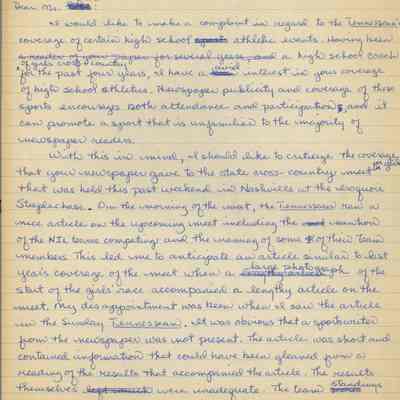 Dear Mr.
I would like to make a complaint in regard to the Tennessean
coverage of certain high school sports athletic events. Having been
a reader of your paper for several years, and a high school coach
of girls cross country
for the past four years, I have a interest in your coverage
of high school athletics. Newspaper publicity and coverage of these
sports encourages both attendance and participation, and it
can promote a sport that is unfamiliar to the majority of
newspaper readers.
With this in mind, I should like to critize the coverage
that your newspaper gave to the state cross-country meet
that was held this past weekend in Nashville at the Iroquois
Steeplechase. On the morning of the meet, the Tennessean ran a
nice article on the upcoming meet including the
of the NIL teams competing and the naming of some of their team
members. This led me to anticipate an article similar to last
year's coverage of the meet when a large photograph of the
start of the girls race accompanied a lengthy article on the
meet. My disappointment was keen when I saw the article
in the Sunday Tennessean. It was obvious that a sportswriter
from the newspaper was not present. The article was short and
contained information that could have been gleaned from a
reading of the results that accompanied the article. The results
themselves left much were inadequate. The team standings